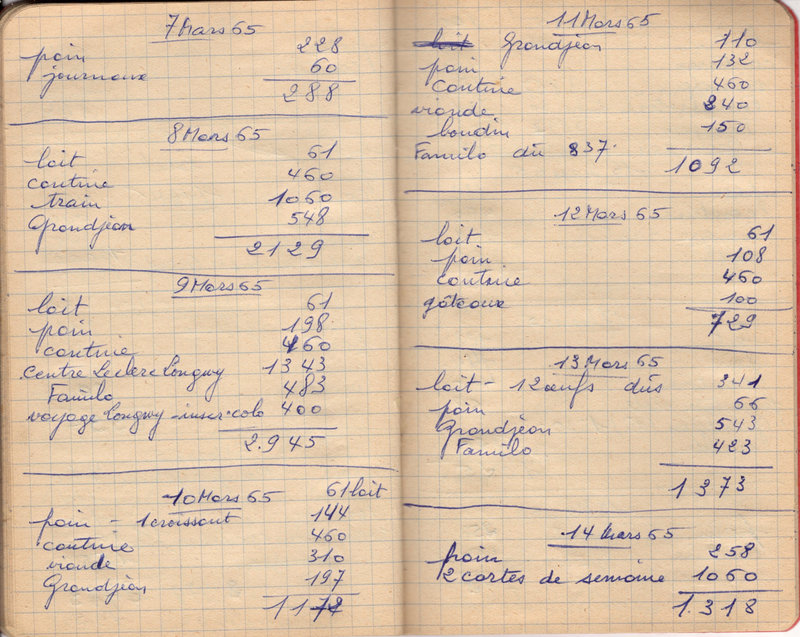 7 Mars 65
pain 228
journaux 60
288
8 Mars 65
lait 61
cantine 460
train 1060
Grandjean 548
2129
9 Mars 65
lait 61
pain 198
cantine 460
Centre Leclerc Longwy 1343
Familo 483
voyage Longwy - inscr. colo 400
2.945
10 Mars 65 61 lait
pain - 1 croissant 144
cantine 460
viande 310
Grandjean 197
1172
11 Mars 65
Grandjean 110
pain 132
cantine 460
viande 240
boudin 150
Familo dû 837.
1092
12 Mars 65
lait 61
pain 108
cantine 460
gâteaux 100
729
13 Mars 65
lait - 12 œufs dûs 341
pain 66
Grandjean 543
Familo 423
1373
14 Mars 65
pain 258
2 cartes de semaine 1060
1.318